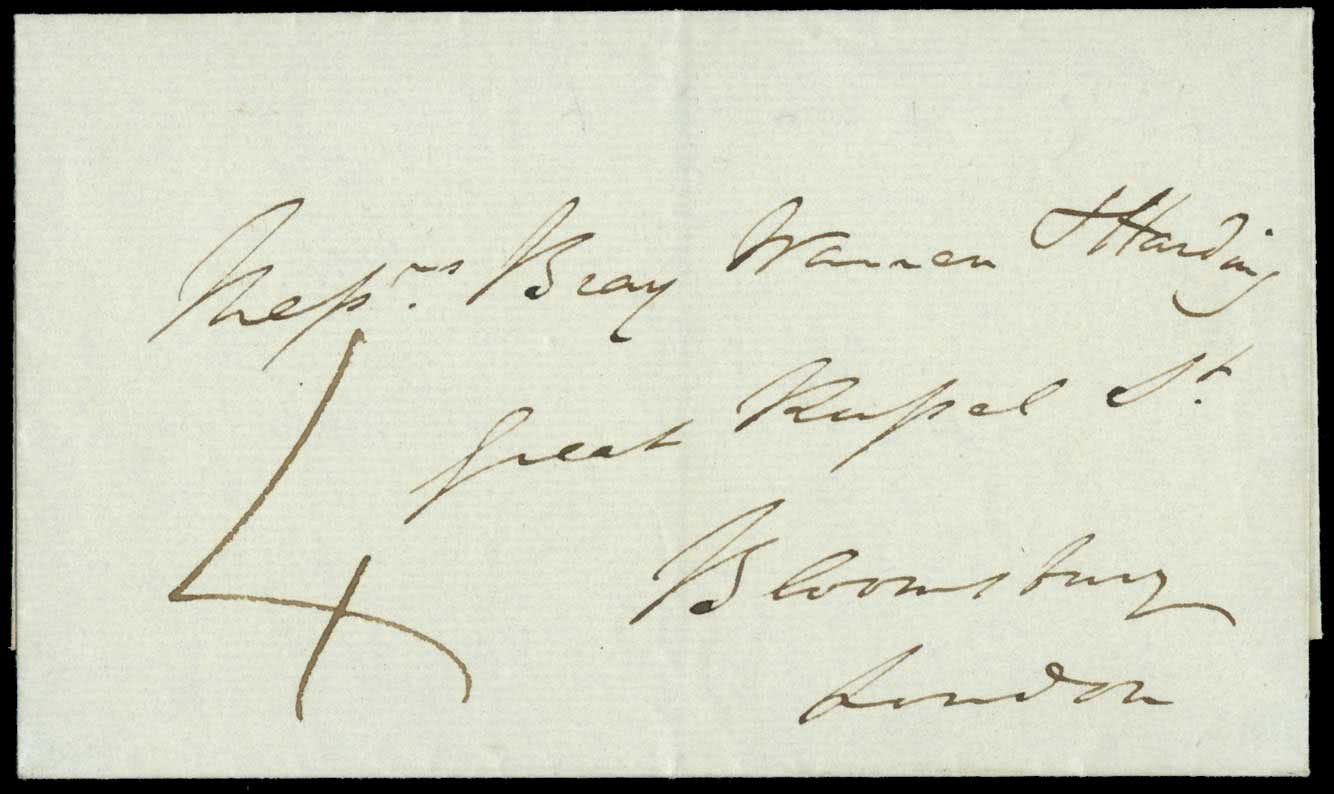 Messrs. Bray Warren & Harding
Great Russel St.
Bloomsbury
London
4